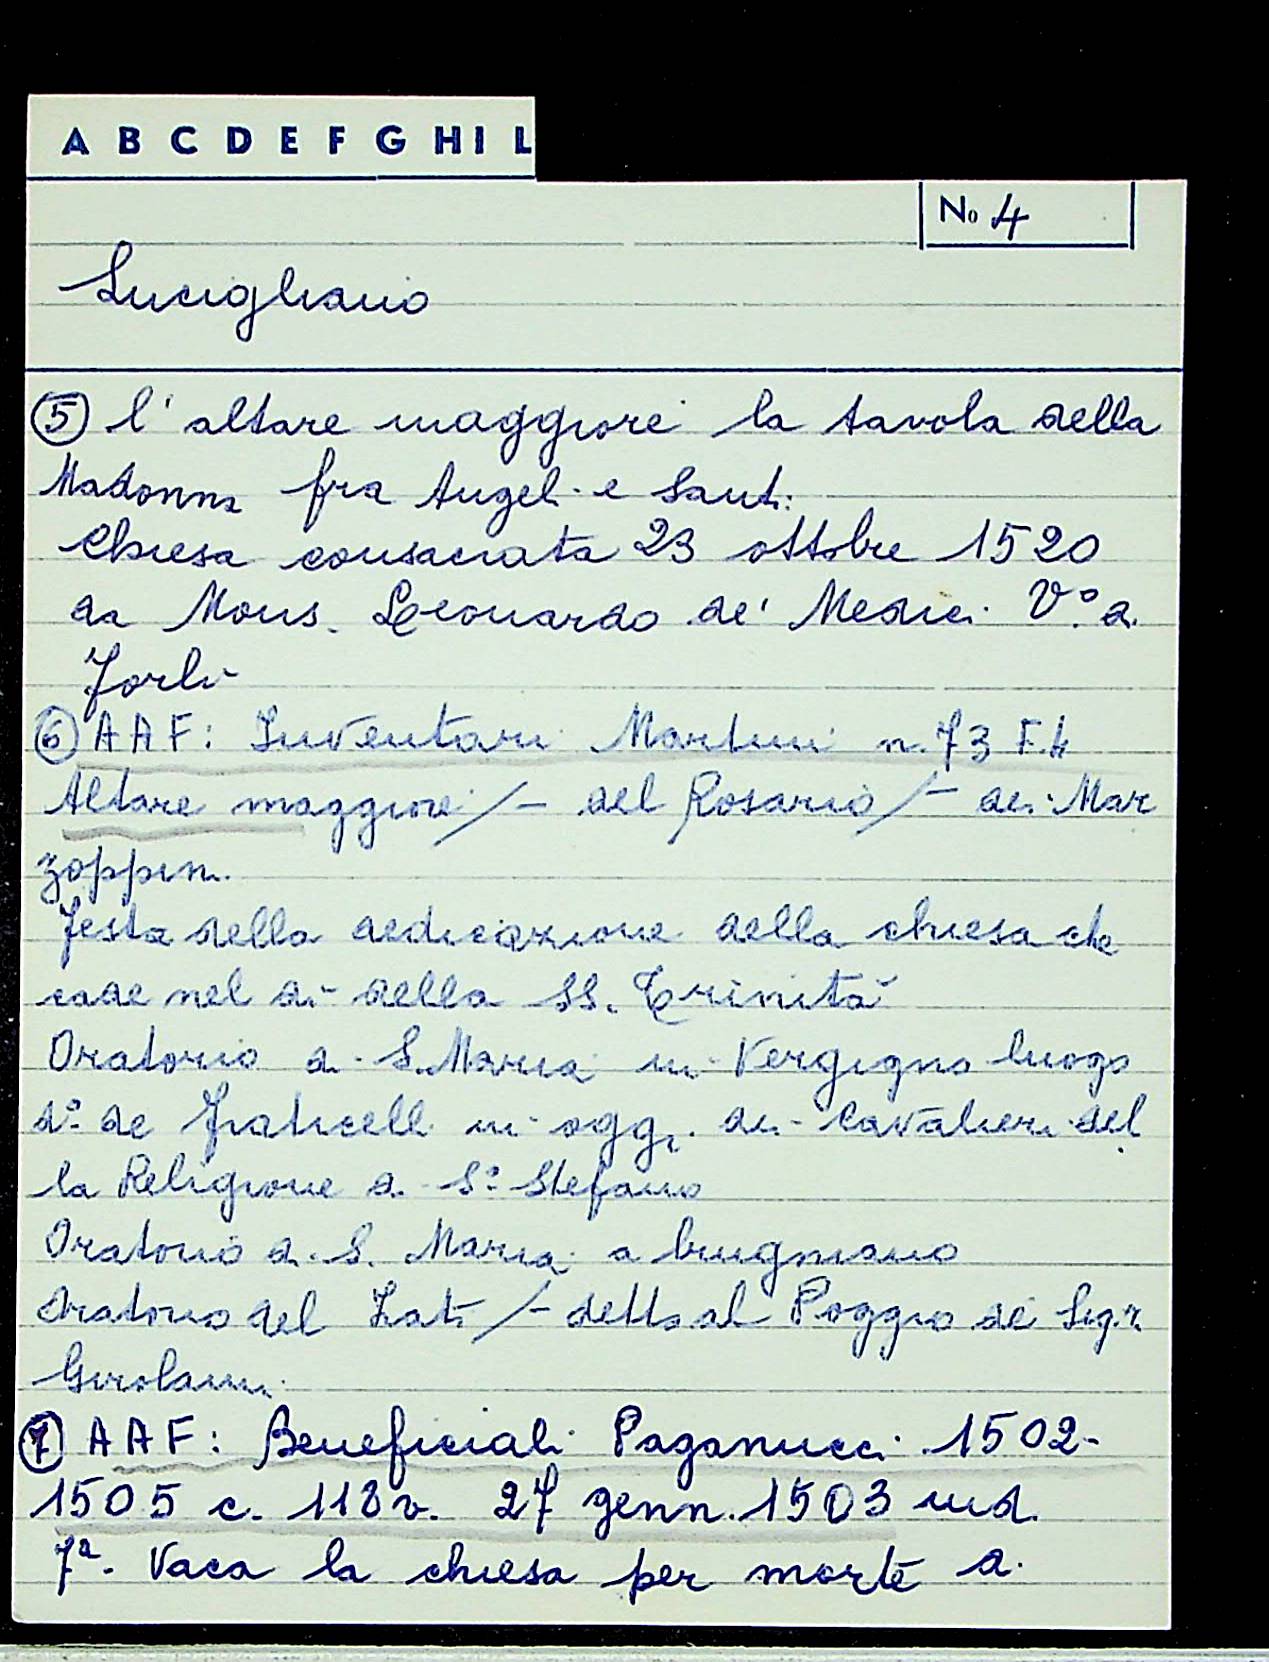 A B C D E F G H I L
No 4
Lucigliano
⑤ l'altare maggiore la tavola della
Madonna fra Angeli e Santi.
Chiesa consacrata 23 ottobre 1520
da Mons. Leonardo de' Medici V.° di
Forlì
⑥ AAF: Inventari Martini n. 73 F. 4
Altare maggiore /- del Rosario /- dei Mar
zoppini.
Festa della dedicazione della chiesa che
cade nel dì della SS. Trinità
Oratorio di S. Maria in Vergigno luogo
d.° de fraticelli in oggi dei Cavalieri del
la Religione di S.° Stefano
Oratorio di S. Maria a brugniano
Oratorio del Lati /- detto al Poggio dei Sig.ri
Girolami.
⑦ AAF: Beneficiali Paganucci 1502-
1505 c. 118v. 27 genn. 1503 ind.
7ª. Vaca la chiesa per morte di